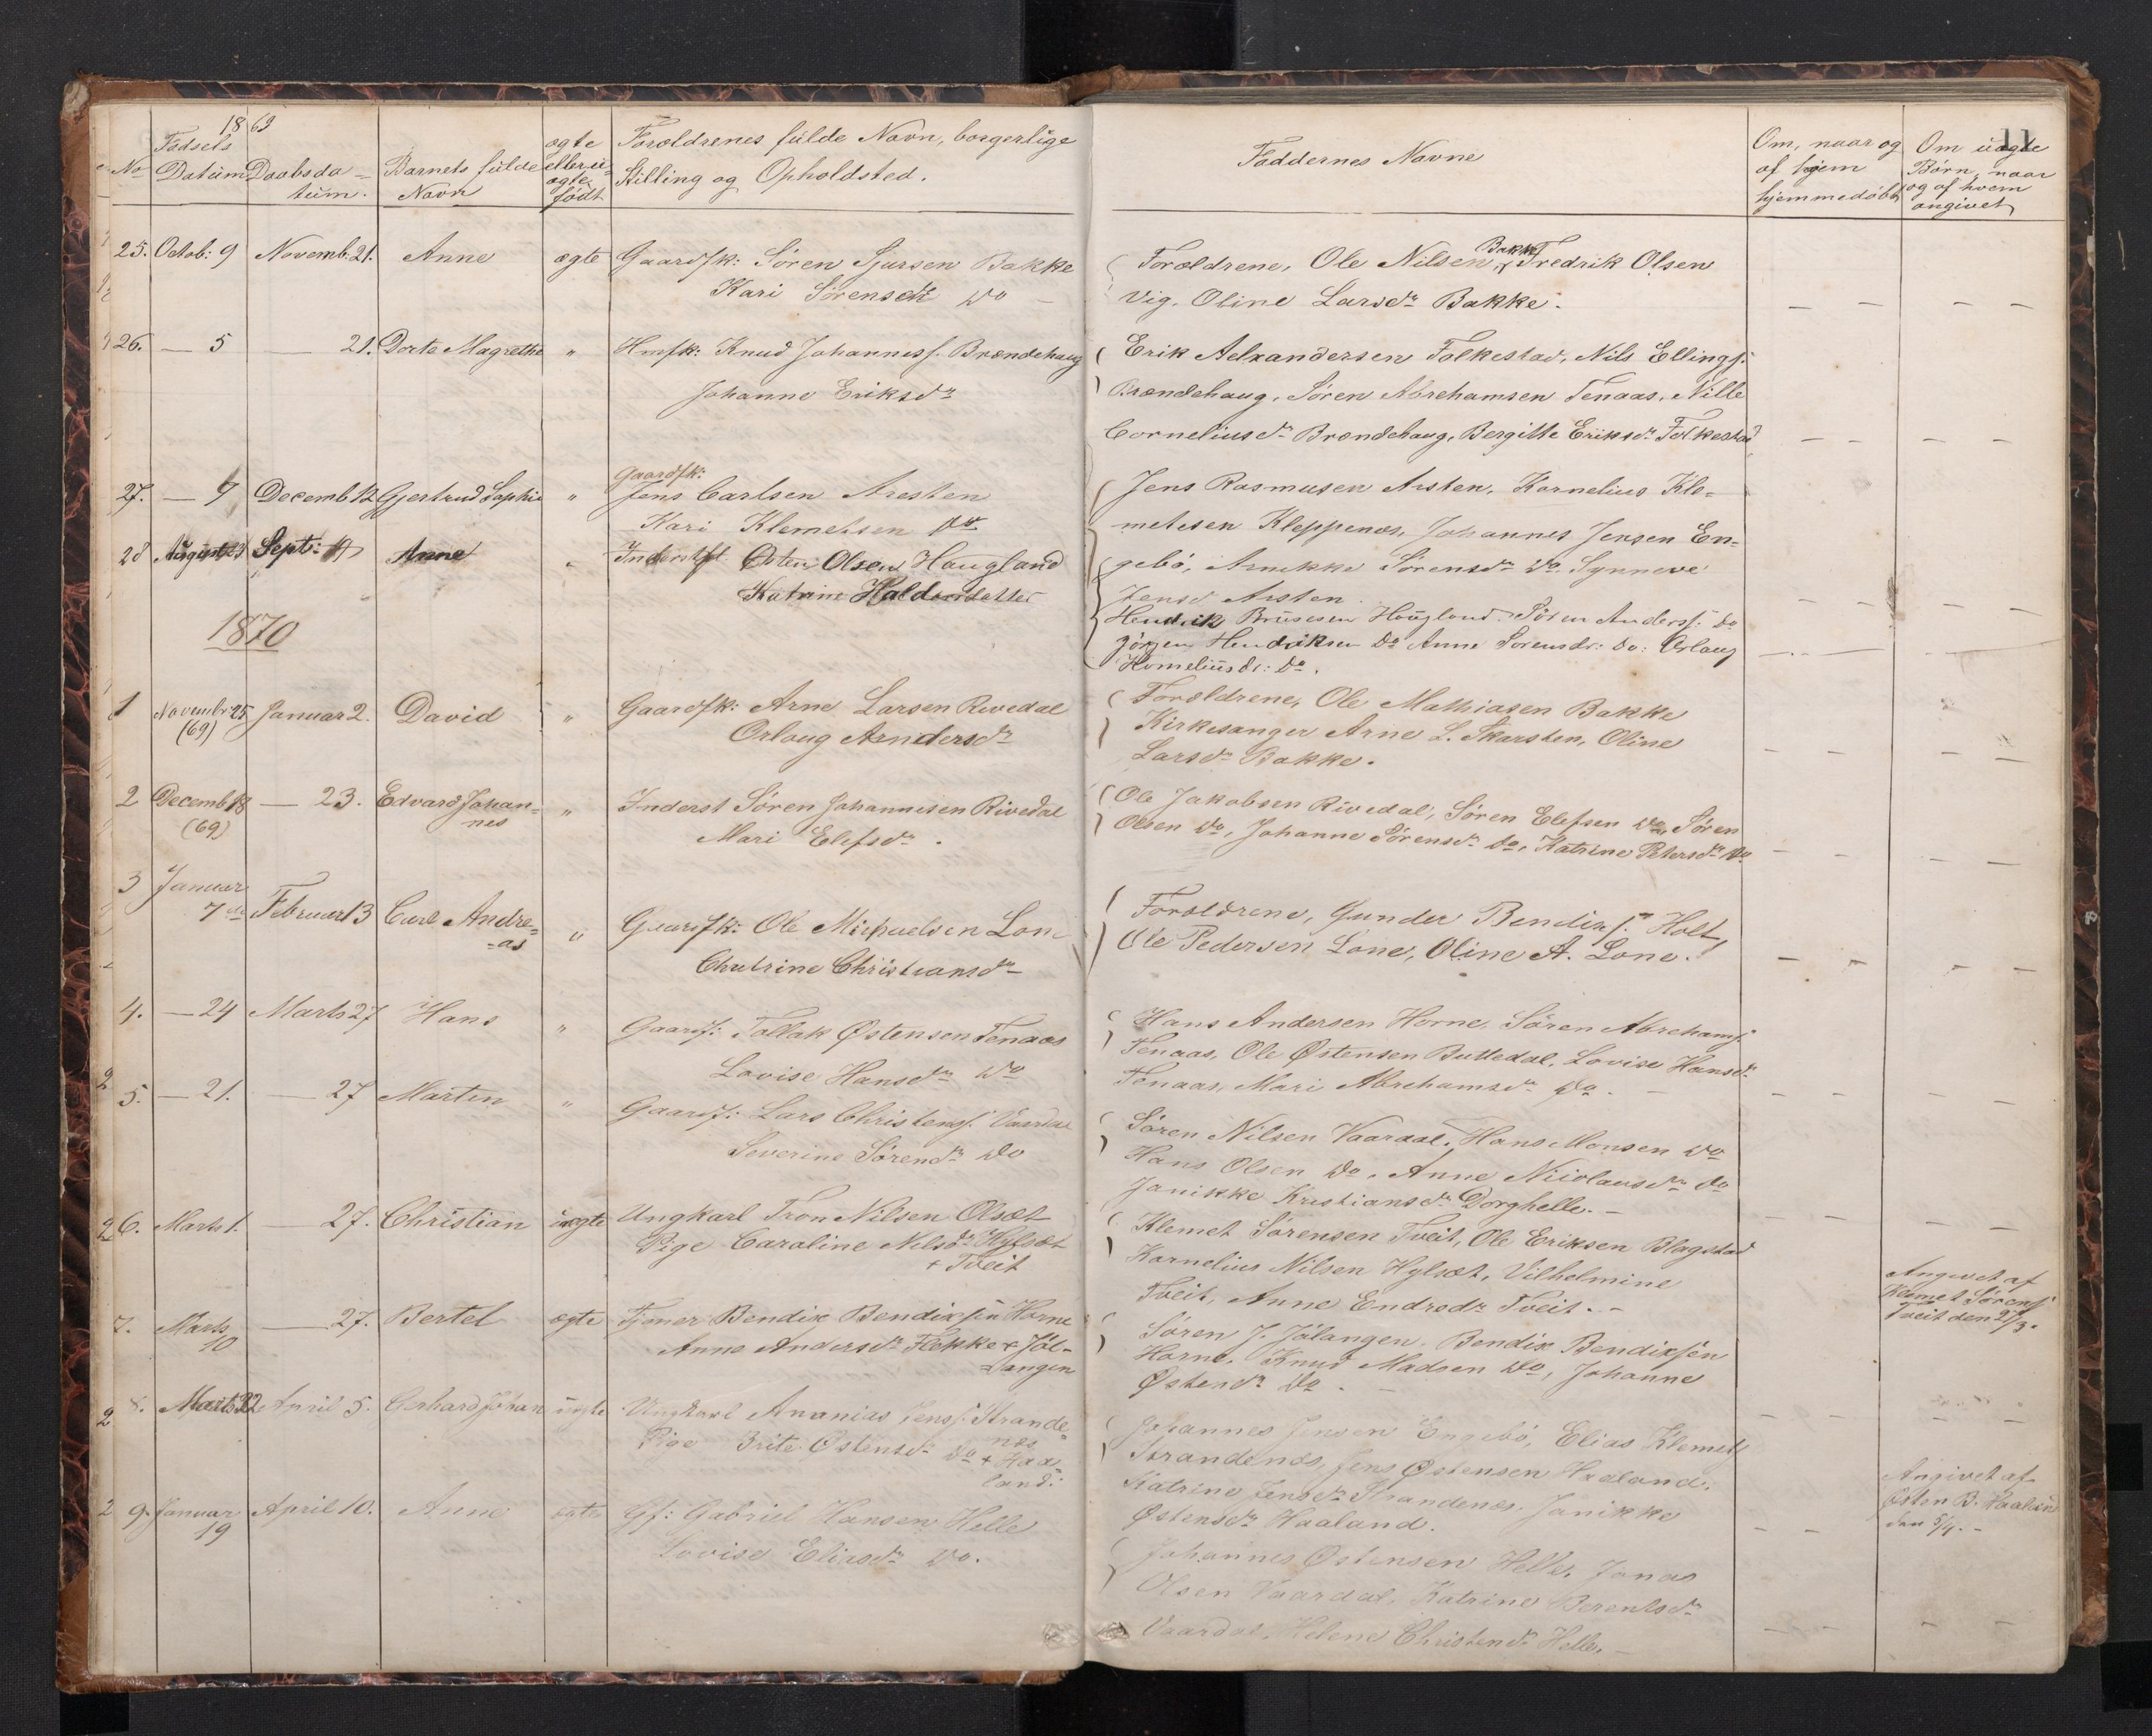 1869
11
No
Fødsels Datum
Daabsda-
tum.
Barnets fulde
Navn
ægte
eller u-
ægte
født
Forældrenes fulde Navn, borgerlige
Stilling og Opholdsted.
Faddernes Navne
Om, naar og
af hvem
hjemmedøbt
Om uægte
Børn, naar
og af hvem
angivet
25. Octob: 9 Novemb. 21. Anne ægte Gaardfk: Søren Sjursen Bakke
Kari Sørensdr Do
Forældrene, Ole Nilsen Bakke, Fredrik Olsen
Vig, Oline Larsdr Bakke.
26. — 5 — 21. Dorte Magrethe " Hmfk: Knud Johanness. Brændehaug
Johanne Eriksdr
Erik Aelxandersen Folkestad, Nils Ellings.
Brændehaug, Søren Abrehamsen Tenaas, Nille
Corneliusdr Brændehaug, Bergitte Eriksdr Folkestad
27. — 7 Decemb 12 Gjertrud Sophie " Gaardfk:
Jens Carlsen Aresten
Kari Klemetsen Do
Jens Rasmusen Arsten, Kornelius Kle-
metesen Kleppenæs, Johannes Jensen En-
gebø, Annikke Sørensdr Do, Synneve
Jensd Arsten.
28 August 23 Sept: 19 Anne " Inderstfl Østen Olsen Haugland
Katrine Haldorsdatter
Hendrik Hougland. Søren Anderss. Do
Jørgen Hendriksen Do Anne Sorensdr: Do: Orlaug
Do.
1870
1 Novembr 25
(69)
Januar 2. David " Gaardfk: Arne Larsen Rivedal
Orlaug Arndersdr
Forældrene, Ole Mathiasen Bakke
Kirkesanger Arne L. Skarsten, Oline
Larsdr Bakke.
2 Decemb 18
(69)
— 23. Edvard Johan-
nes " Inderst Søren Johannesen Rivedal
Mari Elefsdr.
Ole Jakobsen Rivedal, Søren Elefsen Do, Søren
Olsen Do, Johanne Sørensdr Do, Katrine Petersdr Do.
3 Januar
7de Februar 13 Carl Andre-
-as " Gaardfk: Ole Michaelsen Lone
Chatrine Christiansdr
Forældrene, Gunder Bendixs. Holt,
Ole Pedersen Lone, Oline A. Lone.
4. — 24 Marts 27 Hans " Gaardf: Tollak Østensen Tenaas
Lovise Hansdr Do
Hans Andersen Horne, Søren Abrehams.
Tenaas, Ole Østensen Buttedal, Lovise Hansdr
Tenaas, Mari Abrehamsdr Do.
5. — 21. — 27 Marten " Gaardf: Lars Christens. Vaardal
Severine Sørendr Do
Søren Nilsen Vaardal, Hans Monsen Do
Hans Olsen Do, Anne Nicolausdr Do
Janikke Kristiansdr Dorghelle. -
6. Marts 1. — 27. Christian uægte Ungkarl Tron Nilsen Olsæt
Pige Caraline Nilsdr Hylsæt
+ Tveit
Klemet Sørensen Tveit, Ole Eriksen Blagstad
Kornelius Nilsen Hylsæt, Vilhelmine
Tveit, Anne Endredr Tveit. -
Angivet af
Klemet Sørens
Tveit den 27/3.
7. Marts
10
— 27. Bertel ægte Tjener Bendix Bendixsen Horne
Anne Andersdr Flekke + Jøl-
angen
Søren J. Jølangen, Bendix Bendixsen
Horne, Knud Madsen Do, Johanne
Østendr Do.
8. Marts 22 April 5. Gerhard Johan uægte Ungkarl Ananias Jenss. Strande-
næs
Pige Brite Østensdr Do + Haa-
land:
Johannes Jensen Engebø, Elias Klemets
Strandenæs, Jens Østensen Haaland,
Katrine Jensdr Strandenæs, Janikke
Østensdr Haaland.
Angivet af
Østen B. Haaland
den 5/4. -
9. Januar
19
April 10. Anne ægte Gf: Gabriel Hansen Helle
Lovise Eliasdr Do.
Johannes Østensen Helle, Jonas
Olsen Vaardal, Katrine Berentsdr
Vaardal, Helene Christendr Helle. -